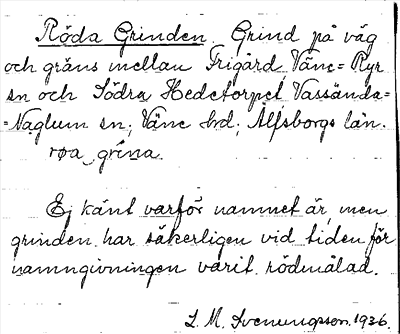 Röda Grinden. Grind på väg
och gräns mellan Frigård, Väne=Ryr
sn och Södra Hedetorpet, Vassända=
=Naglum sn; Väne hd; Älfsborgs län.
røa grina.
Ej känt varför namnet är, men
grinden har säkerligen vid tiden för
namngivningen varit rödmålad.
L. M. Svenungsson. 1936.